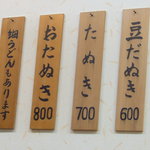 豆だぬき 600
たぬき 700
おたぬき 800
細うどんもあります